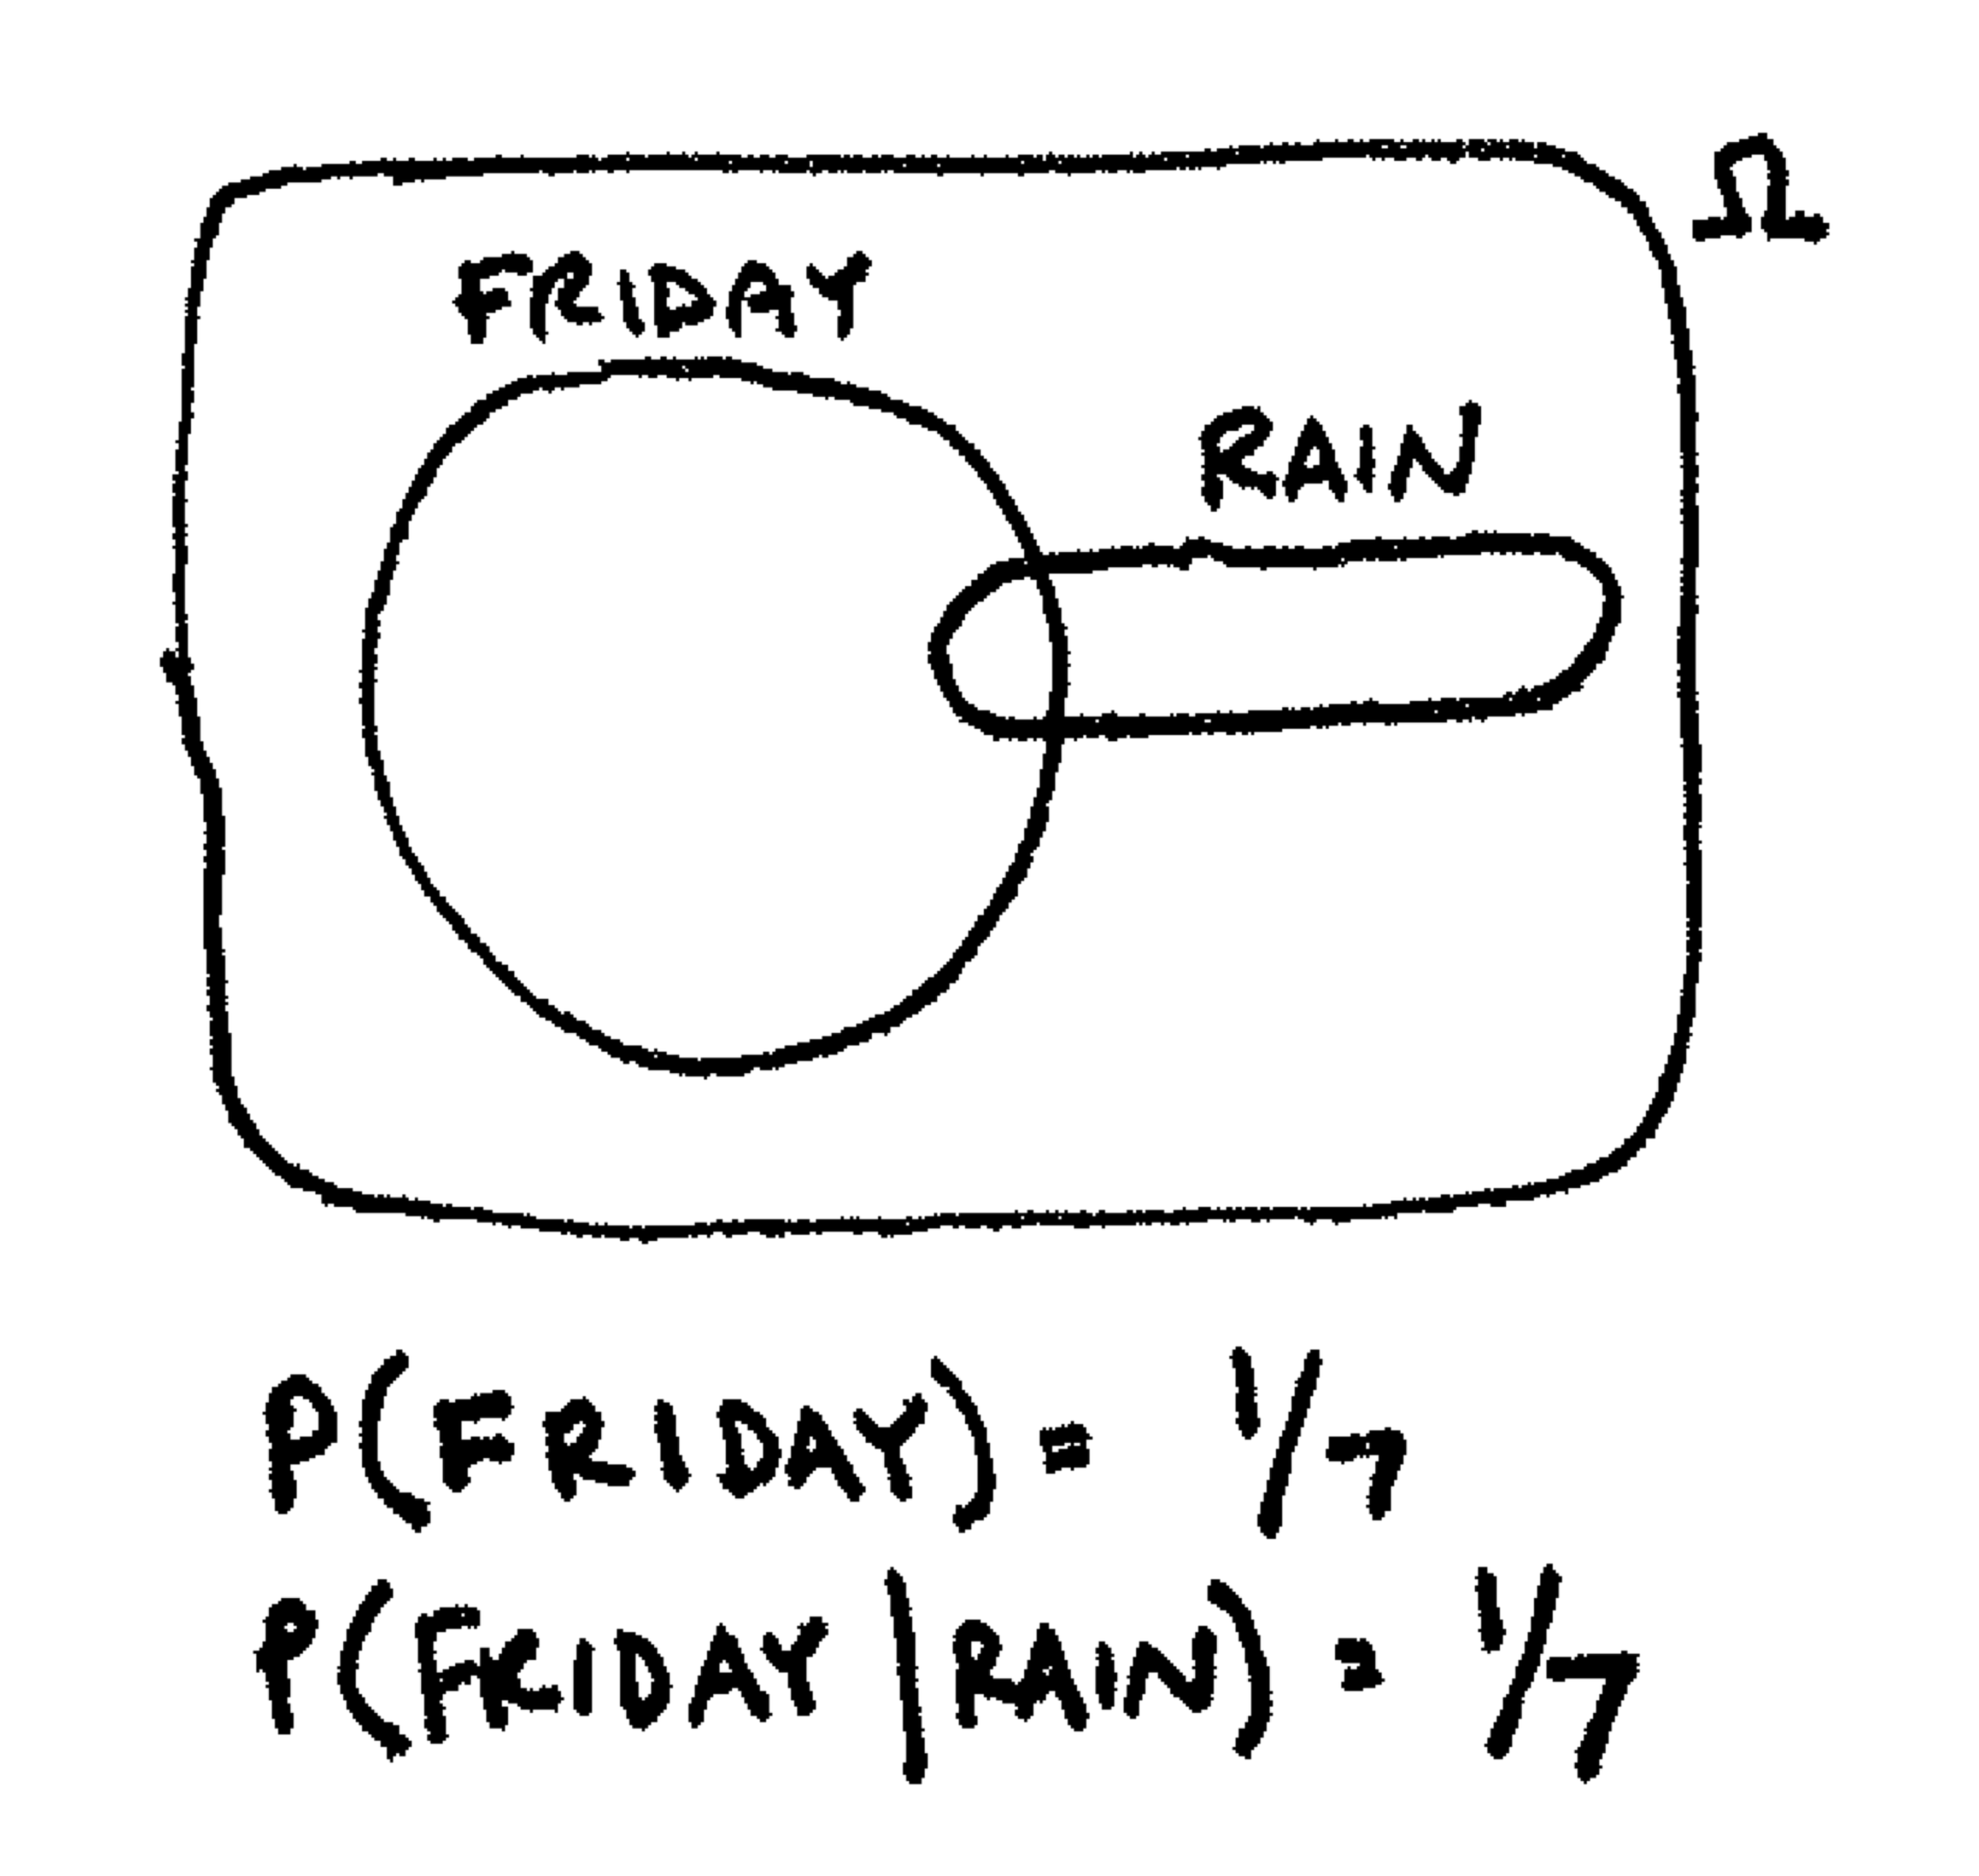 Ω
FRIDAY
RAIN
P(FRIDAY) = 1/7
P(FRIDAY | RAIN) = 1/7